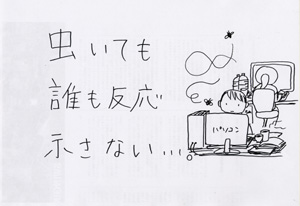 虫いても
誰も反応
示さない...。
パソコン